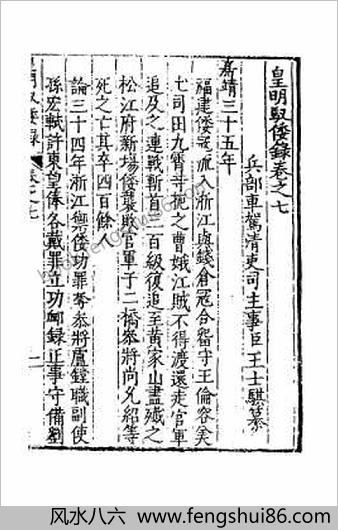 皇明馭倭錄卷之七
兵部車駕清吏司主事臣王士騏纂
嘉靖三十五年
福建倭寇流入浙江與錢倉寇合畱守王倫容美
七司田九霄等扼之曹娥江賊不得渡還走官軍
追及之連戰斬首二百級復追至黃家山盡殲之
松江府新場倭襲敗官軍于二橋叅將尚允紹等
死之亡其卒四百餘人
論三十四年浙江禦倭功罪奪叅將盧鏜職副使
孫宏軾許東望俸各戴罪立功邮錄正事守備劉
皇明馭倭錄 卷之七
一
风水八六 www.fengshui86.com